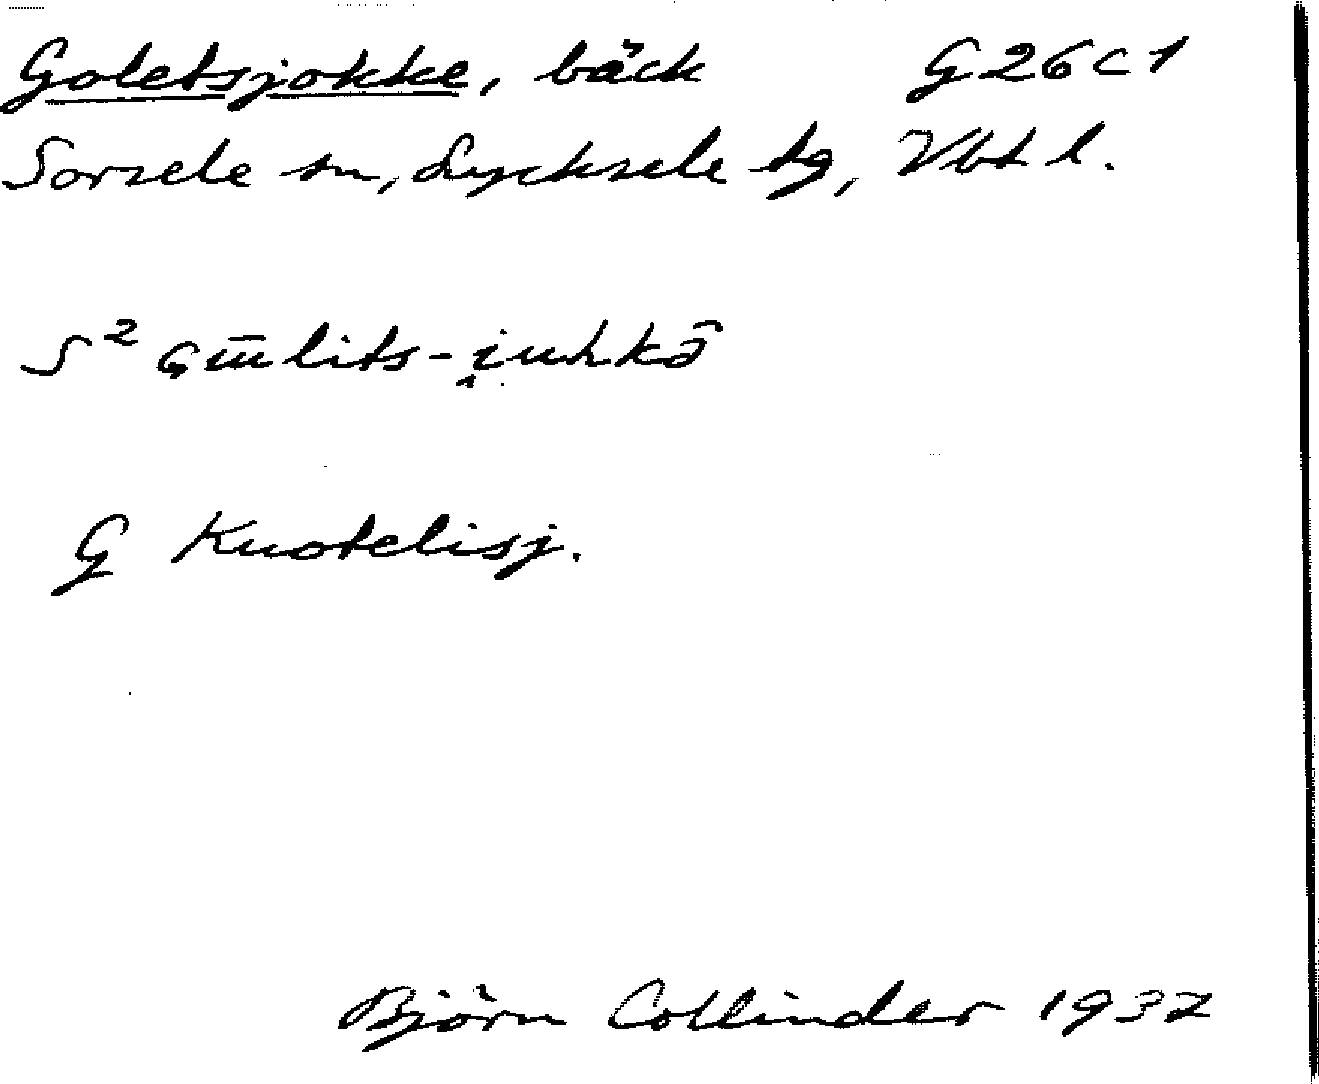 Goletsjokke, bäck G 26 c 1
Sorsele sn, Lycksele tg, Vbt l.
S²
G Kuotelisj.
Björn Collinder 1937